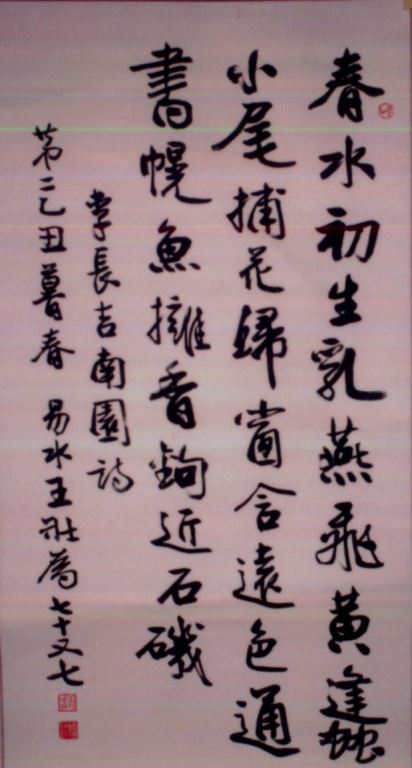 春水初生乳燕飛黃蠭
小尾捕花歸窗含遠色通
書幌魚擁香鉤近石磯
李長吉南園詩
第二乙丑暮春 易水王壯為七十又七